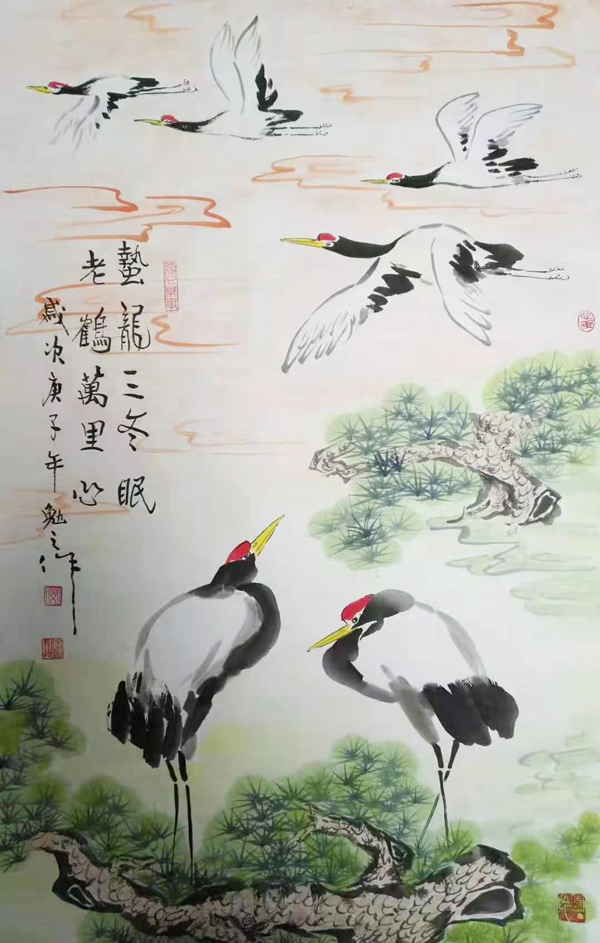 蟄龍三冬眠
老鶴萬里心
歲次庚子年勉之作